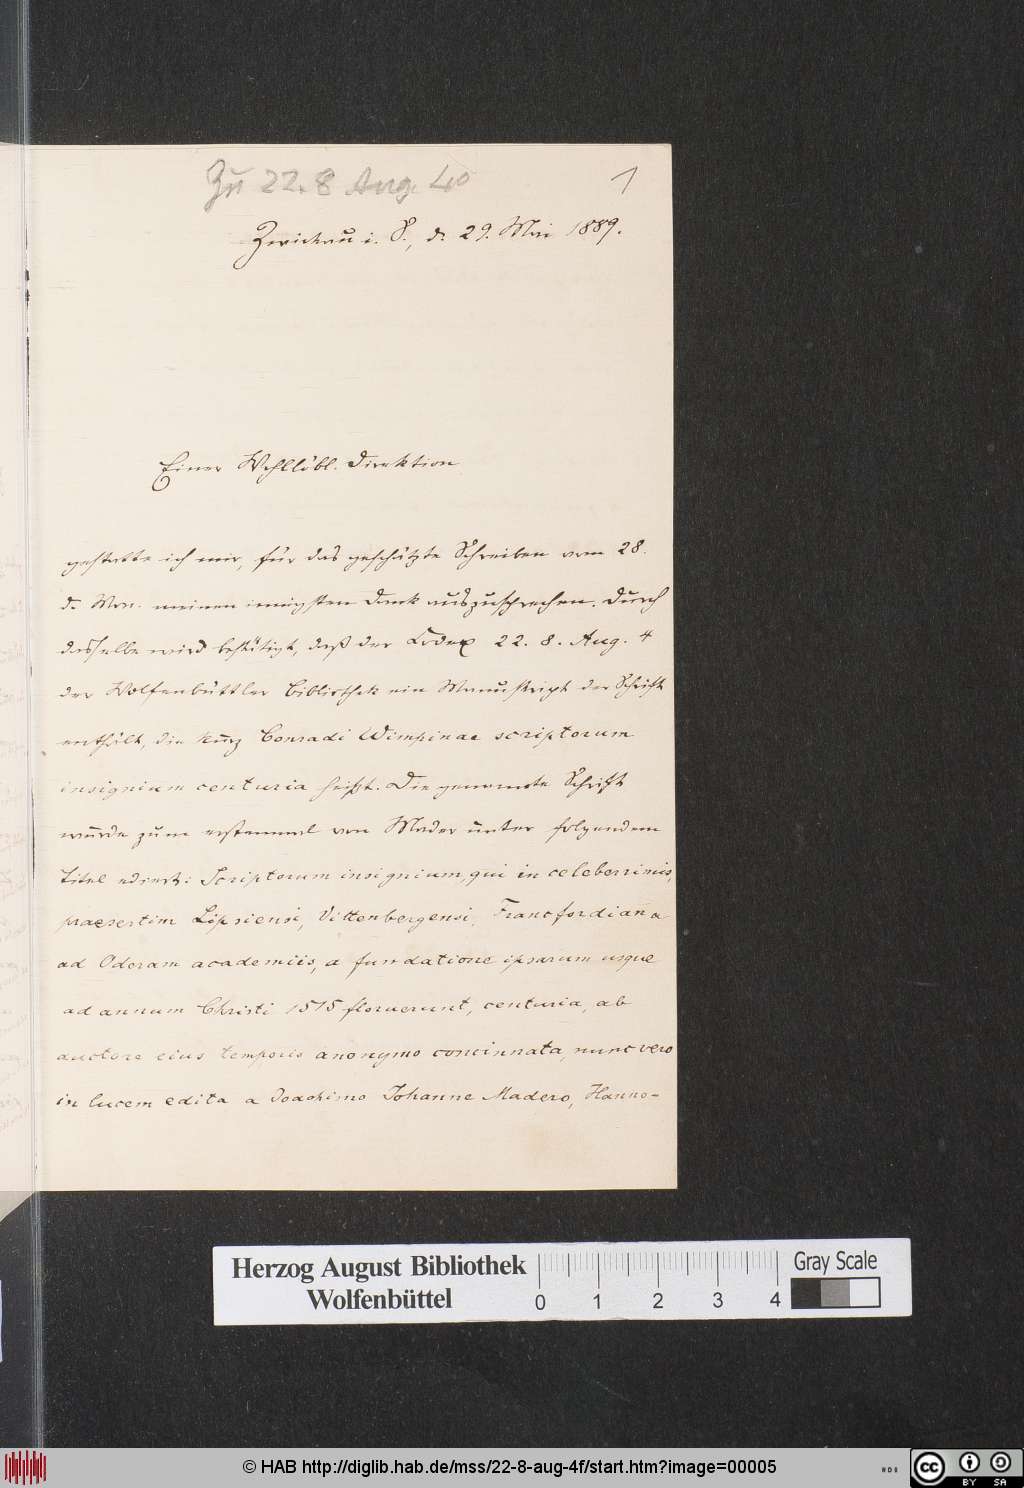 Zu 22. 8 Aug. 4o
1
Zwickau i. S., d. 29. Mai 1889.
Einer Wohllöbl. Direktion
gestatte ich mir, für das geschätzte Schreiben vom 28.
d. Mon. meinen innigsten Dank auszusprechen. Durch
dasselbe wird bestätigt, daß der Codex 22. 8. Aug. 4
der Wolfenbüttler Bibliothek ein Manuskript der Schrift
enthält, die kurz Conradi Wimpinae scriptorum
insignium centuria heißt. Die genannte Schrift
wurde zum erstenmal von Mader unter folgendem
Titel edirt: Scriptorum insignium, qui in celeberrimis,
praesertim Lipsiensi, Vittenbergensi, Francfordiana
ad Oderam academiis, a fundatione ipsarum usque
ad annum Christi 1515 floruerunt, centuria, ab
auctore eius temporis anonymo concinnata, nunc vero
in lucem edita a Joachimo Johanne Madero, Hanno-
Herzog August Bibliothek
Wolfenbüttel
0 1 2 3 4
Gray Scale
© HAB http://diglib.hab.de/mss/22-8-aug-4f/start.htm?image=00005
cc BY SA